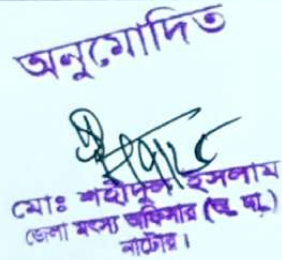 অনুমোদিত
মোঃ শহীদুল ইসলাম
জেলা মৎস্য অফিসার (অ. দা.)
নাটোর।